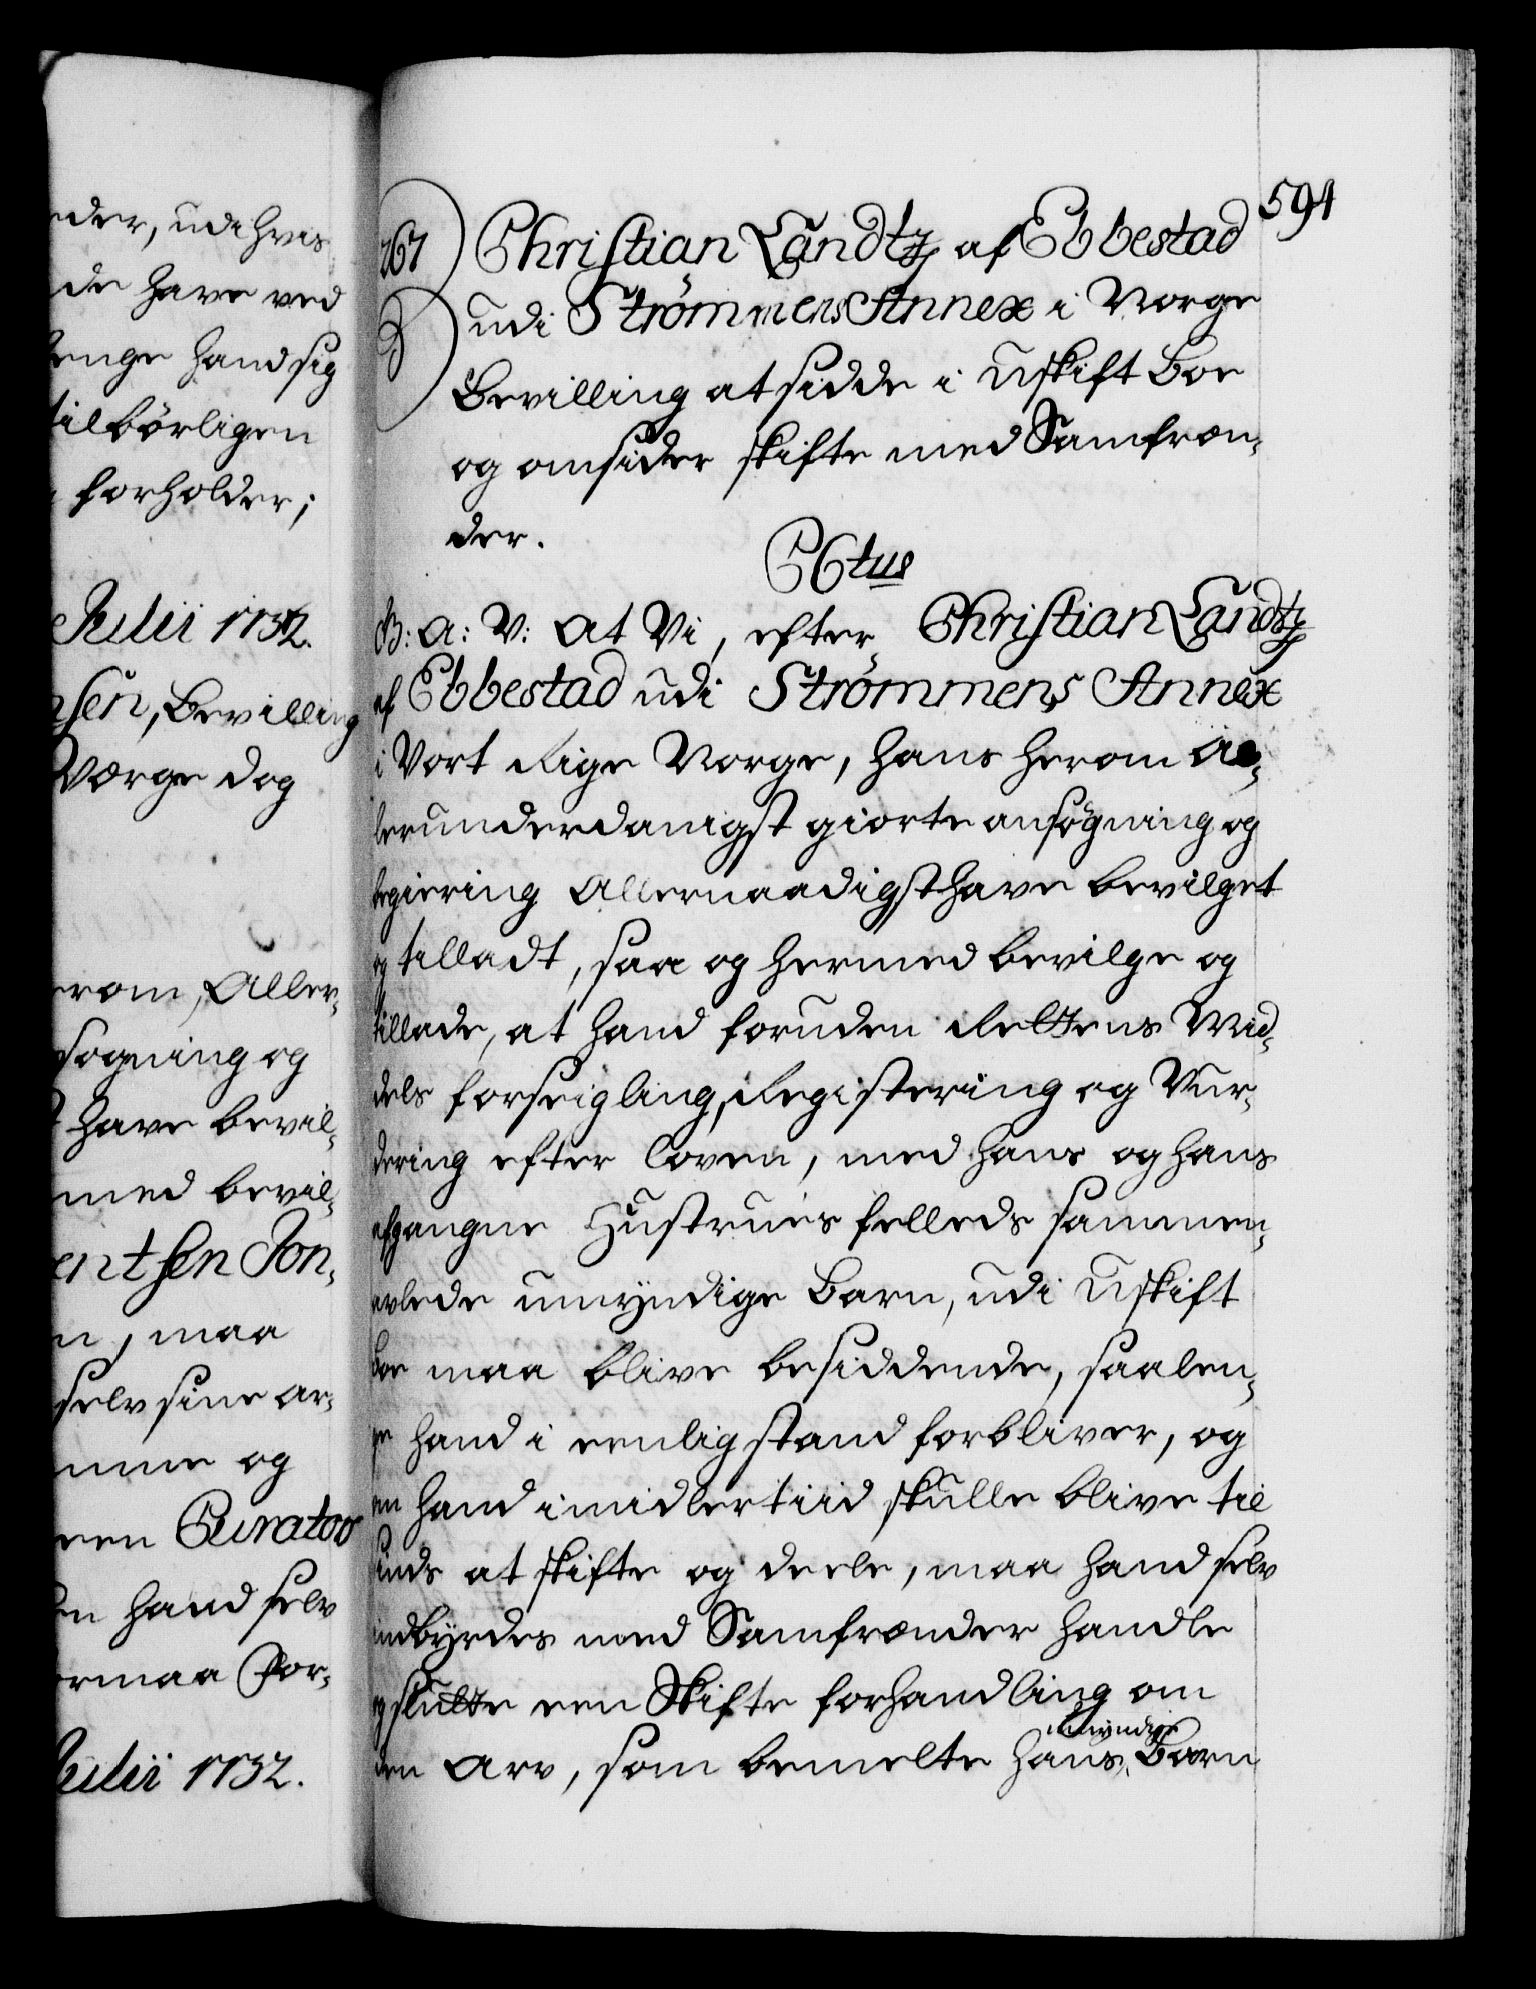 eder, udi hvis
de have ved
lenge hand sig
tilbørligen
forholder;
Julii 1732.
sen, Bevilling
Værge dog
erom, Aller-
søgning og
have bevil-
med bevil-
entsen Jon-
n, maa
selv sine ar-
mme og
een Curator
en hand selv
ormaa For-
Julii 1732.
591
267
Christian Landtz af Ebbestad
udi Strömmens Annex i Norge
Bevilling at sidde i Uskift Boe
og omsider skifte med Samfræn-
der.
C6tus
G: A: V: At Vi, efter Christian Landtz
af Ebbestad udi Strömmens Annex
i Vort Rige Norge, hans herom al-
lerunderdanigst giorte ansøgning og
begiering Allernaadigst have bevilget
og tilladt, saa og hermed bevilge og
tillade, at hand foruden Rettens Mid-
dels forseigling, Registering og Vur-
dering efter Loven, med hans og hans
afgangne Hustrues felleds sammen-
avlede umyndige Barn, udi Uskift
Boe maa blive besiddende, saalen-
ge hand i eenlig stand forbliver, og
om hand imidlertiid skulle blive til
sinds at skifte og deele, maa hand selv
indbyrdes med Samfrænder handle
og slutte een Skifte forhandling om
umyndige
den Arv, som bemelte hans Barn